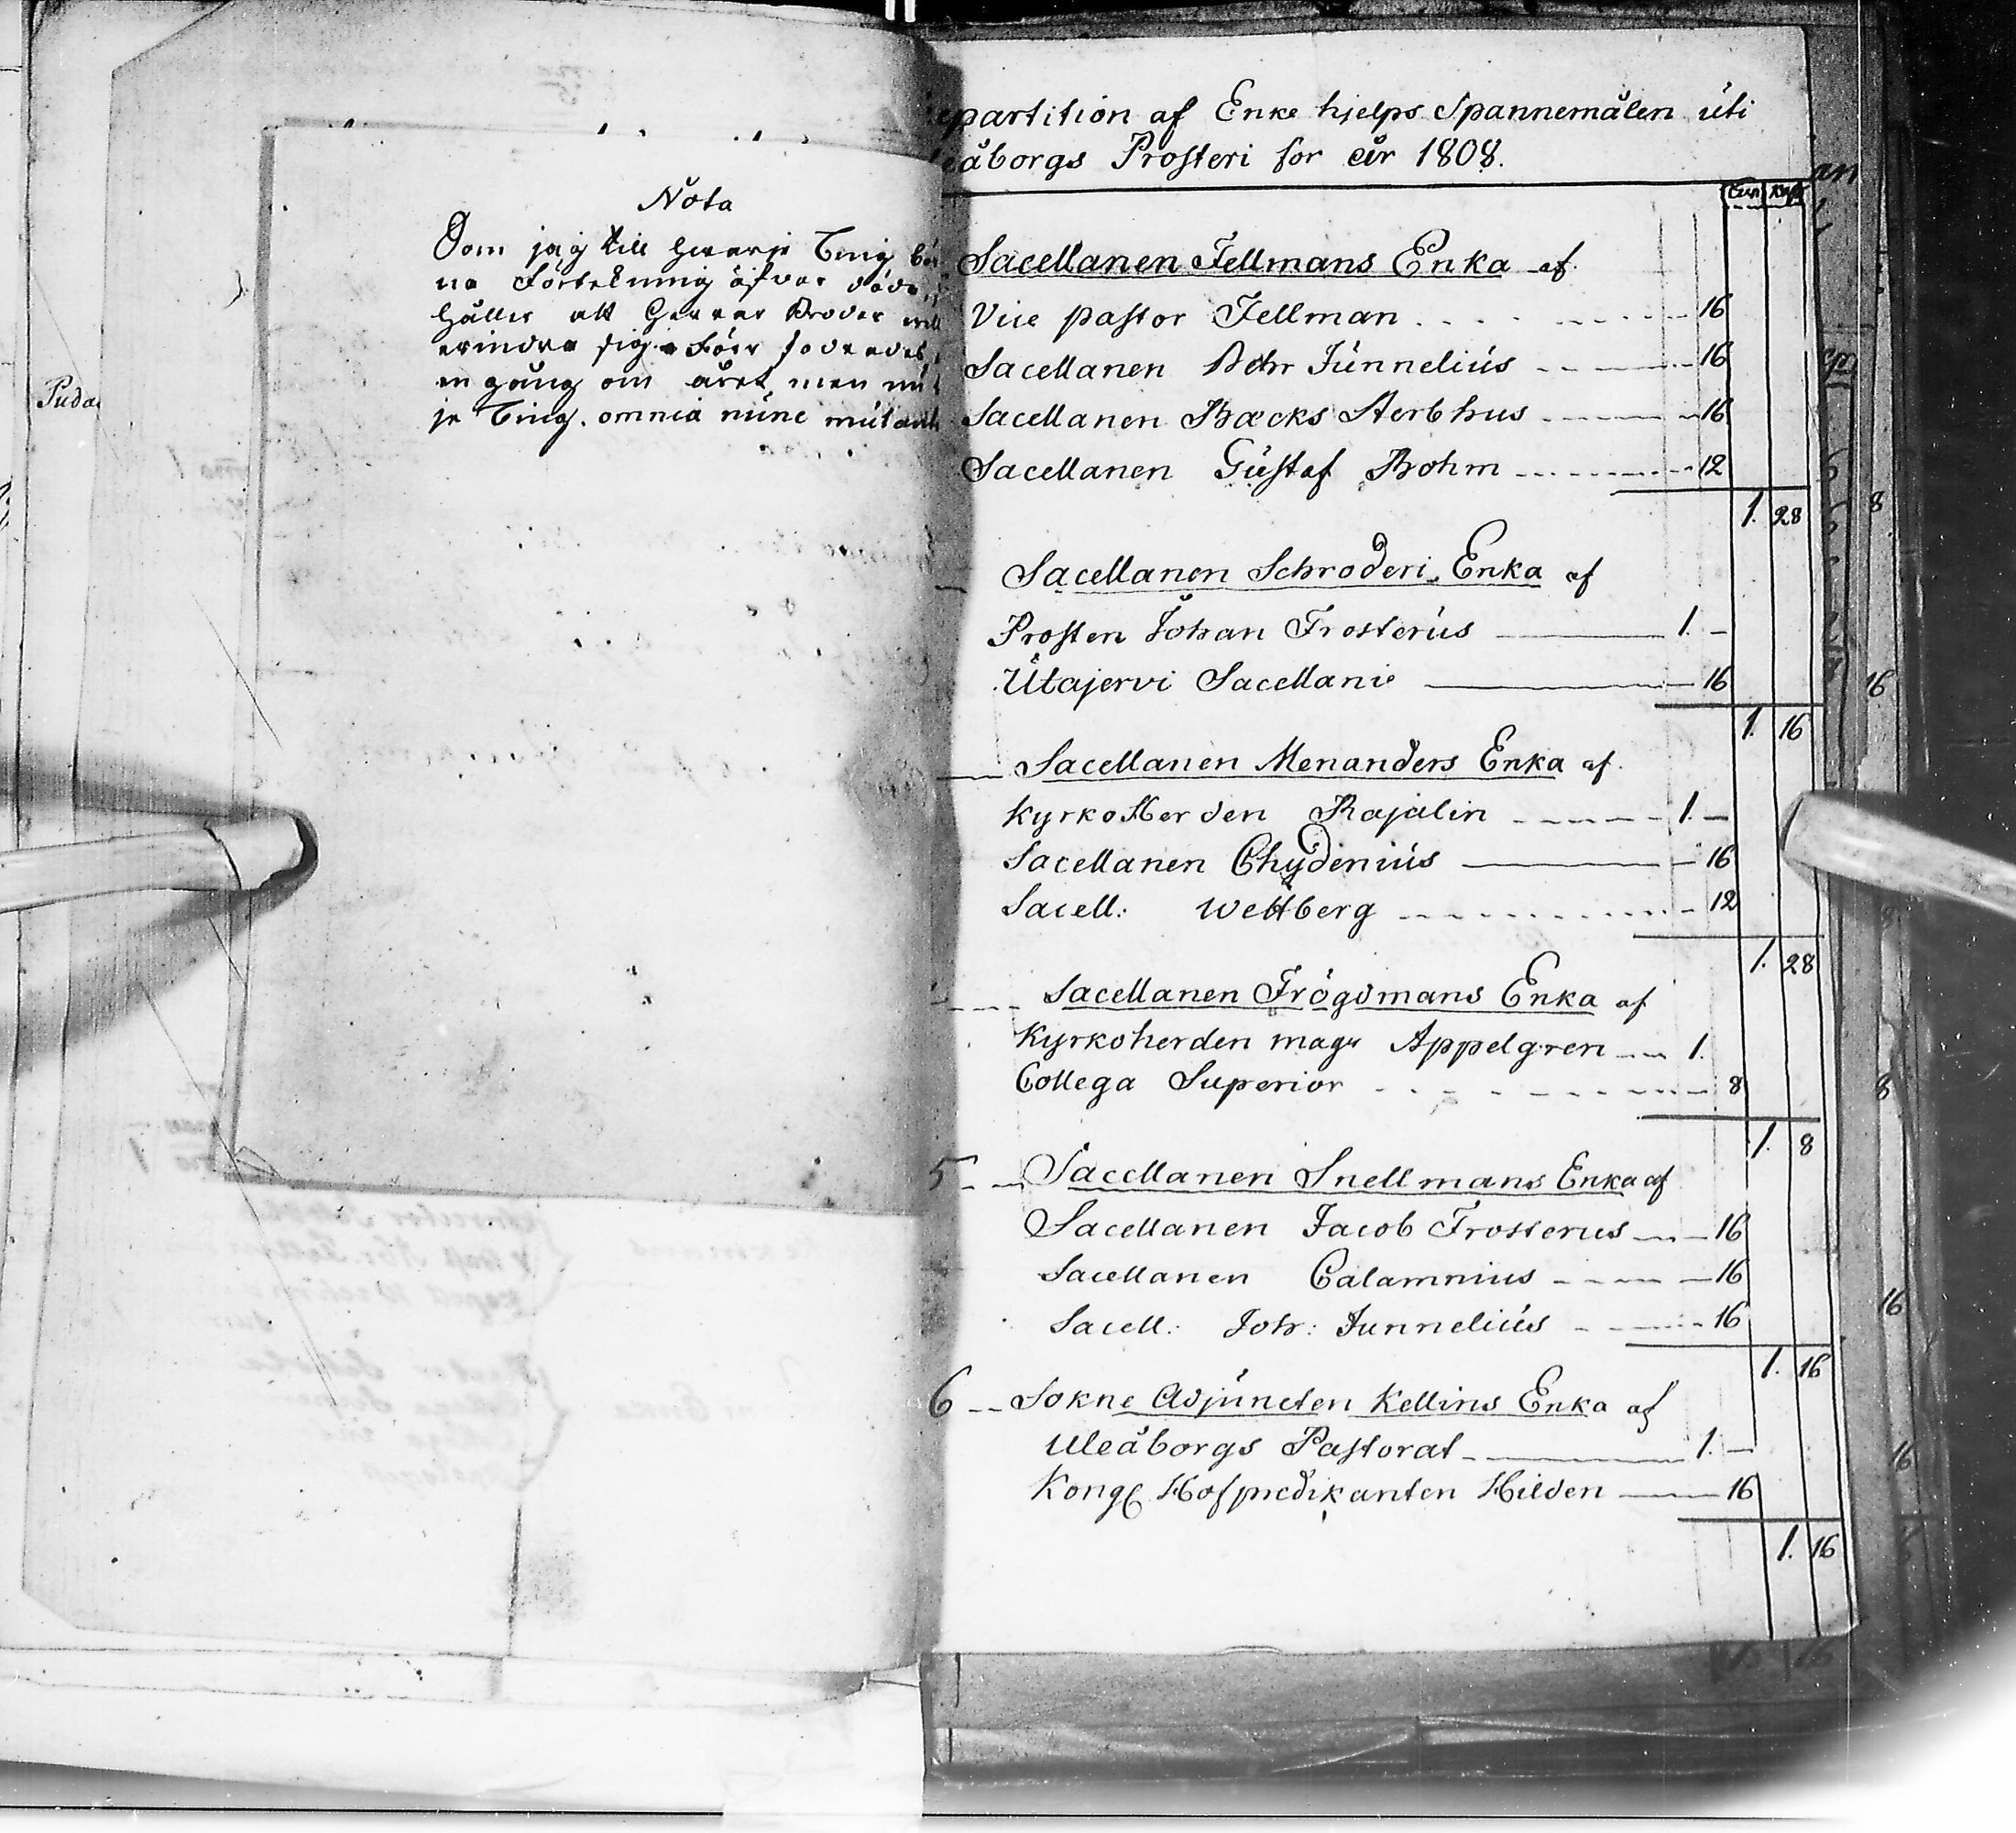 Nota
Som jag till hwarje Ting
na Förtekning öfver
håller att Herrar Bröder
erindra sig
en gång om året, men nu
je Ting. omnia nunc mutant
Puda
epartition af Enke hjelps Spannemålen uti
eåborgs Prosteri for år 1808.
Sacellanen Fellmans Enka af
Vice pastor Fellman 16
Sacellanen Junnelius 16
Sacellanen Backs Sterbhus 16
Sacellanen Gustaf Bohm 12
1. 28
Sacellanen Schroderi Enka af
Prosten Johan Frosterus 1. –
Utajervi Sacellanie 16
1. 16
Sacellanen Menanders Enka af
KyrkoHerden Rajalin 1. –
Sacellanen Chydenius 16
Sacell: Wettberg 12
1. 28
Sacellanen Frögdmans Enka af
Kyrkoherden magr Appelgren 1.
Collega Superior 8
1. 8
5 Sacellanen Snellmans Enka af
Sacellanen Jacob Frosterus 16
Sacellanen Calamnius 16
Sacell: Joh: Junnelius 16
1. 16
6 Sokne Adjuncten Kellins Enka af
Uleåborgs Pastorat 1. –
Kongl Hofpredikanten Hilden 16
1. 16